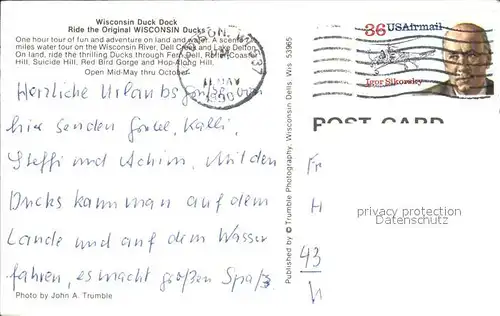 Wisconsin Duck Dock
Ride the Original WISCONSIN Ducks
One hour tour of fun and adventure on land and water. A scenic
miles water tour on the Wisconsin River, Dell Creek and Lake Delton.
On land, ride the thrilling Ducks through Fern Dell, Roller Coaster
Hill, Suicide Hill, Red Bird Gorge and Hop-Along Hill.
Open Mid-May thru October
MAY
1990
36 USAirmail
Igor Sikorsky
POST CARD
Herzliche Urlaubsgrüße von
hier senden Kalli,
Steffi und Achim. Mit den
Ducks kann man auf dem
Lande und auf dem Wasser
fahren, es macht großen Spaß.
Photo by John A. Trumble
Published by © Trumble Photography, Wisconsin Dells, Wis 53965
Fr
H
43
privacy protection
Datenschutz